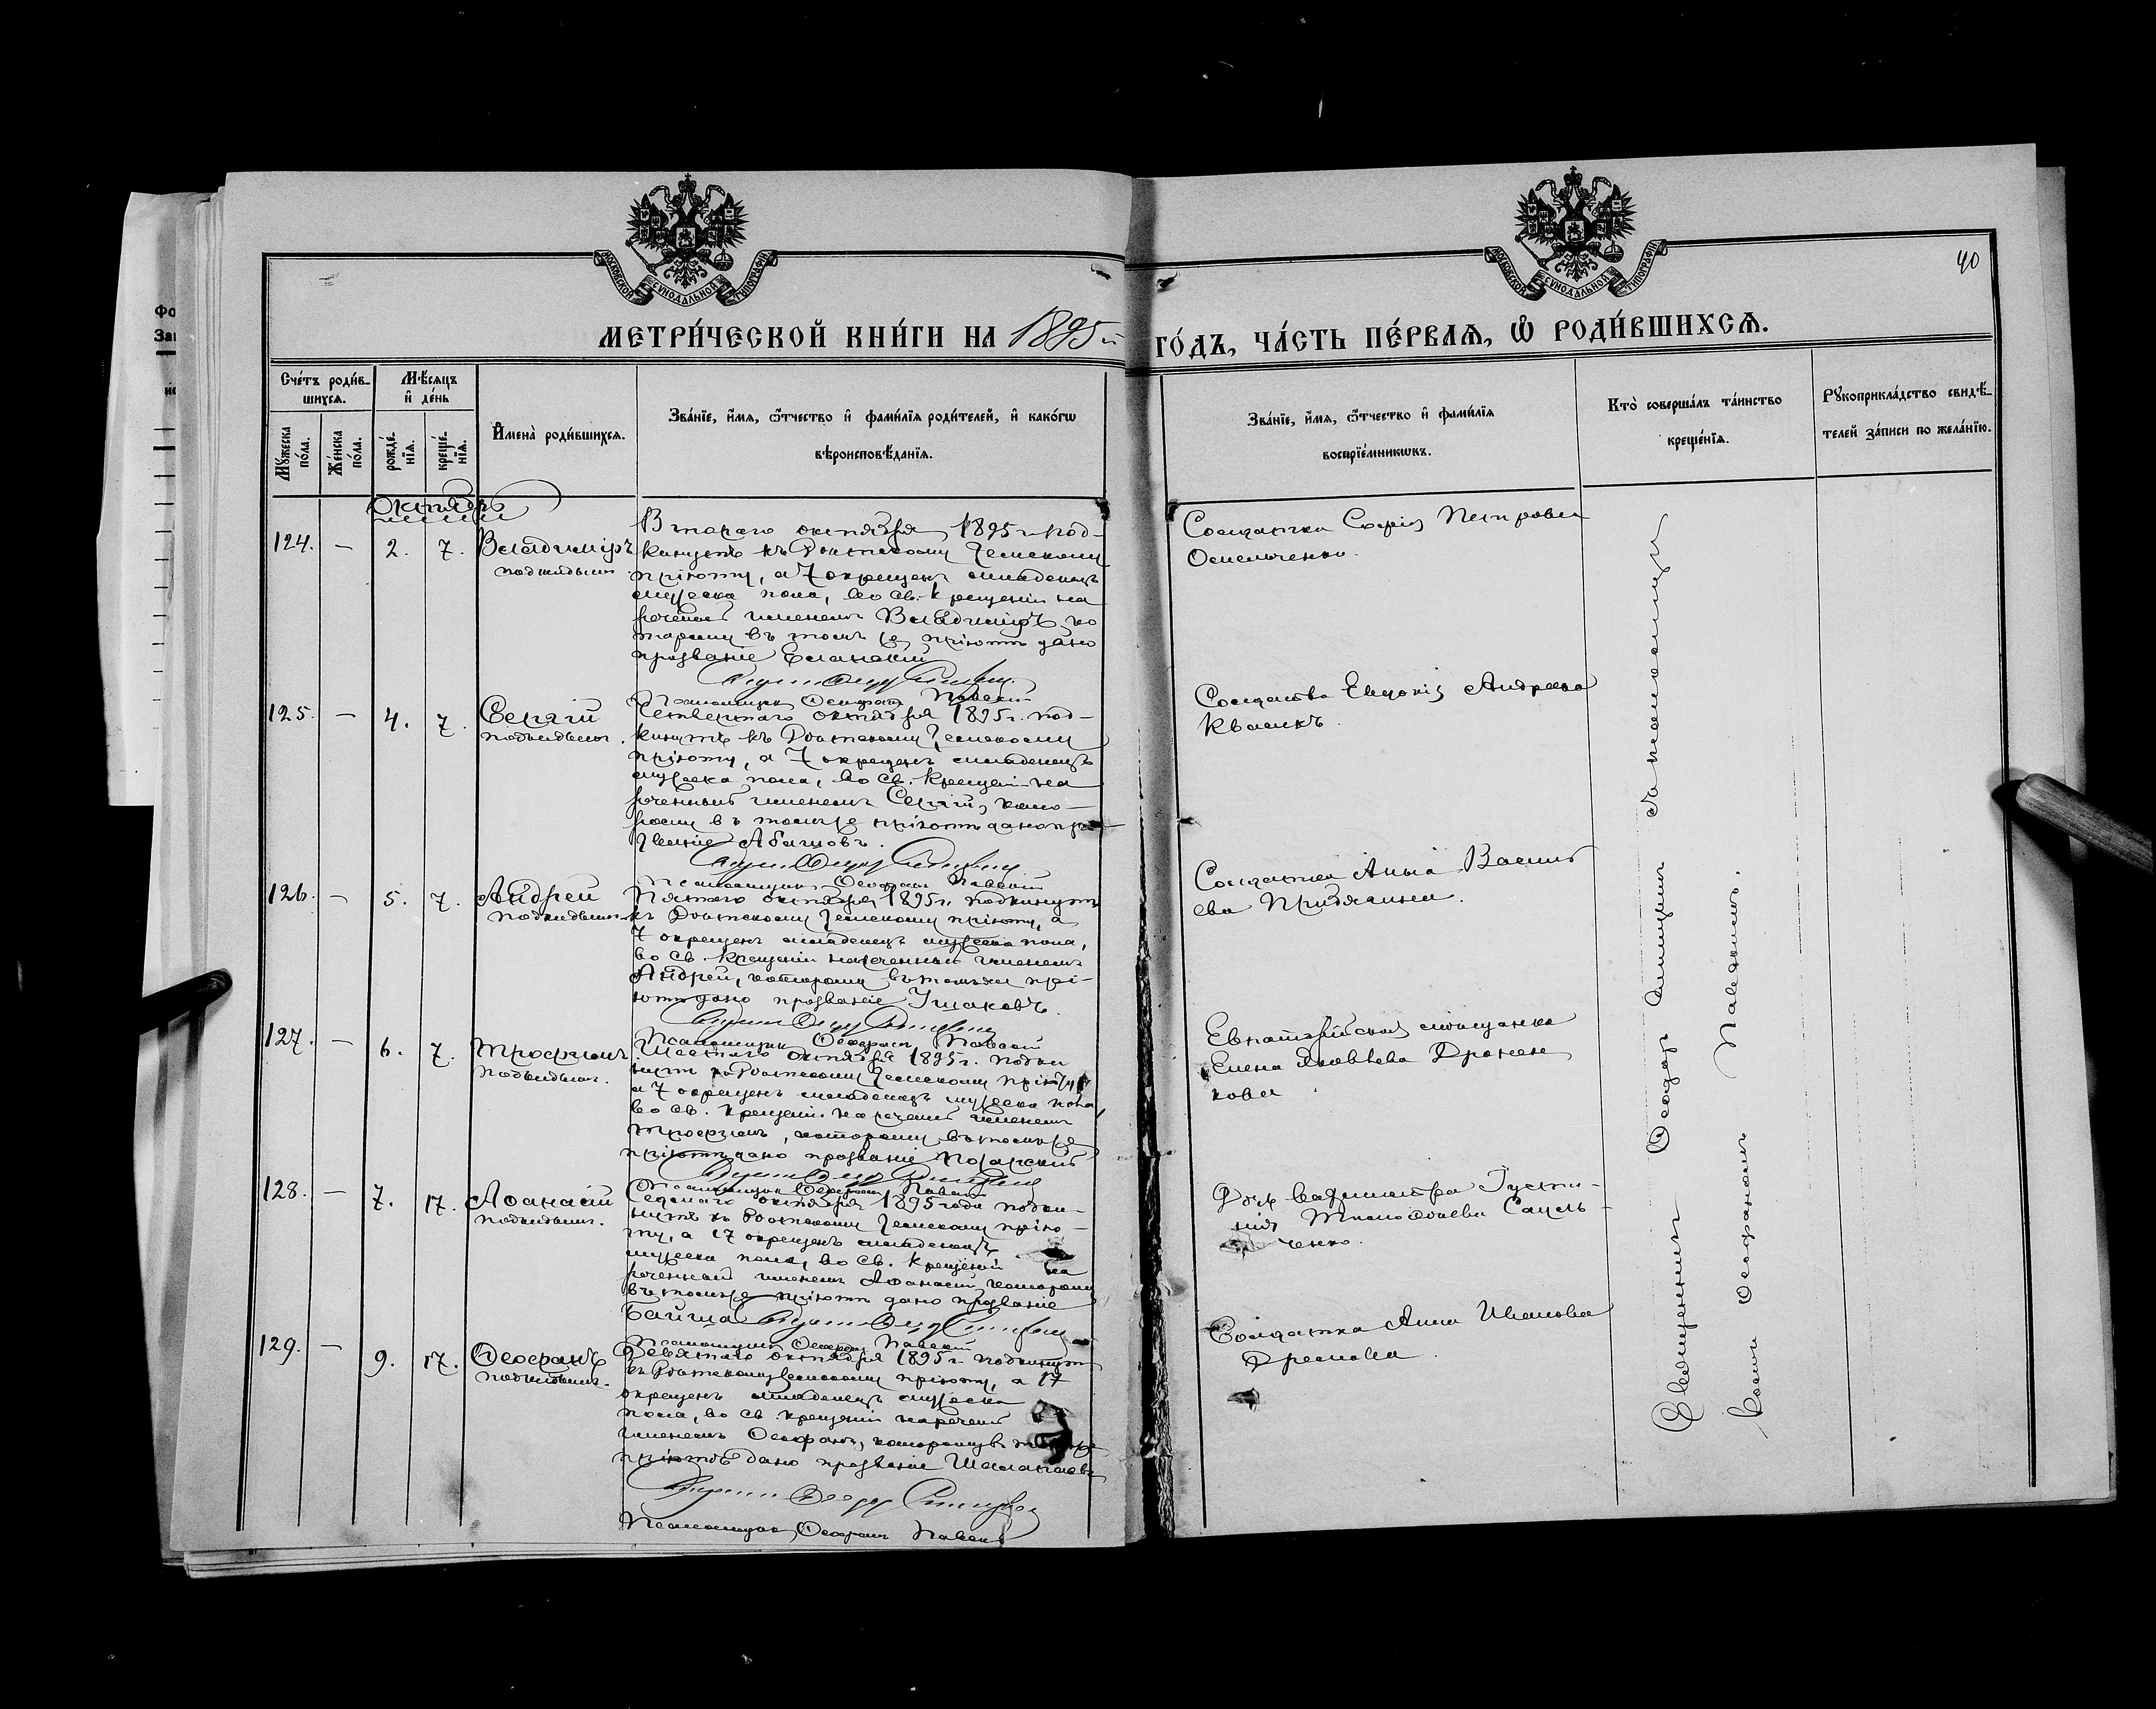 МОСКОВСКОЙ СѴНОДАЛЬНОЙ ТИПОГРАФІИ
МОСКОВСКОЙ СѴНОДАЛЬНОЙ ТИПОГРАФІИ
40
МЕТРИ́ЧЕСКОЙ КНИ́ГИ НА 1895й ГО́ДЪ, ЧА́СТЬ ПЕ́РВАѦ, Ѡ҆ РОДИ́ВШИХСѦ.
Сче́тъ роди́в-
шихсѧ.
Мꙋ́жеска по́ла.
Же́нска по́ла.
Мѣ́сѧцъ
и҆ де́нь
рожде́нїѧ.
креще́нїѧ.
И҆мена̀ роди́вшихсѧ.
Зва́нїе, и҆́мѧ, ѻ҆́тчество и҆ фами́лїѧ роди́телей, и҆ како́гѡ
вѣроисповѣ́данїѧ.
Зва́нїе, и҆́мѧ, ѻ҆́тчество и҆ фами́лїѧ
воспрїе́мникѡвъ.
Кто̀ соверша́лъ та́инство
креще́нїѧ.
Рꙋкоприкла́дство свидѣ́-
телей за́писи по жела́нїю.
Октябрь
124. — 2. 7. Владиміръ
подкидышъ
Втораго октября 1895 г. под-
кинутъ къ Земскому
пріюту, а 7 окрещенъ младенецъ
мужеска пола, во св. Крещеніи на
реченный именемъ Владиміръ, ко
торому въ томъ же пріютѣ дано
прозваніе
Солдатка Софія Петрова
Омельченко.
Псаломщикъ Ѳеофанъ Павскій
125. — 4. 7. Сергій
подкидышъ.
Четвертаго октября 1895 г. под-
кинутъ къ Земскому
пріюту, а 7 окрещенъ младенецъ
мужеска пола, во св. Крещеніи на
реченный именемъ Сергій, кото-
рому въ томъ же пріютѣ дано про
званіе Абашовъ.
Солдатка Евдокія Андреева
Квасикъ.
Псаломщикъ Ѳеофанъ Павскій
126. — 5. 7. Андрей
подкидышъ
Пятаго октября 1895 г. подкинутъ
къ Земскому пріюту, а
7 окрещенъ младенецъ мужеска пола,
во св. Крещеніи нареченный именемъ
Андрей, которому въ томъ же прі-
ютѣ дано прозваніе Ушаковъ.
Солдатка Анна Васильева
Псаломщикъ Ѳеофанъ Павскій
127. — 6. 7. Трофимъ
подкидышъ.
Шестаго октября 1895 г. подки
нутъ къ Земскому пріюту,
а 7 окрещенъ младенецъ мужеска пола,
во св. Крещеніи нареченый именемъ
Трофимъ, которому въ томъ же
пріютѣ дано прозваніе Пожарскій
Евпаторійская мѣщанка
Елена Яковлева
Псаломщикъ Ѳеофанъ Павскій
128. — 7. 17. Аѳанасій
подкидышъ.
Седьмаго октября 1895 года подки-
нутъ къ Земскому прію-
ту, а 17 окрещенъ младенецъ
мужеска пола, во св. Крещеніи на
реченный именемъ Аѳанасій, которому
въ томъ же пріютѣ дано прозваніе
Байша
Дочь вахмистра Густи-
нія Тимоѳеева
Псаломщикъ Ѳеофанъ Павскій
129. — 9. 17. Ѳеофанъ
подкидышъ.
Девятаго октября 1895 г. подкинутъ
къ Земскому пріюту, а 17
окрещенъ младенецъ мужеска
пола, во св. крещеніи нареченый
именемъ Ѳеофанъ, которому въ томъ же
пріютѣ дано прозваніе
Солдатка Анна Иванова
Дремова.
Псаломщикъ Ѳеофанъ Павскій
Священникъ Ѳеодоръ съ псаломщи
комъ Ѳеофаномъ Павскимъ.